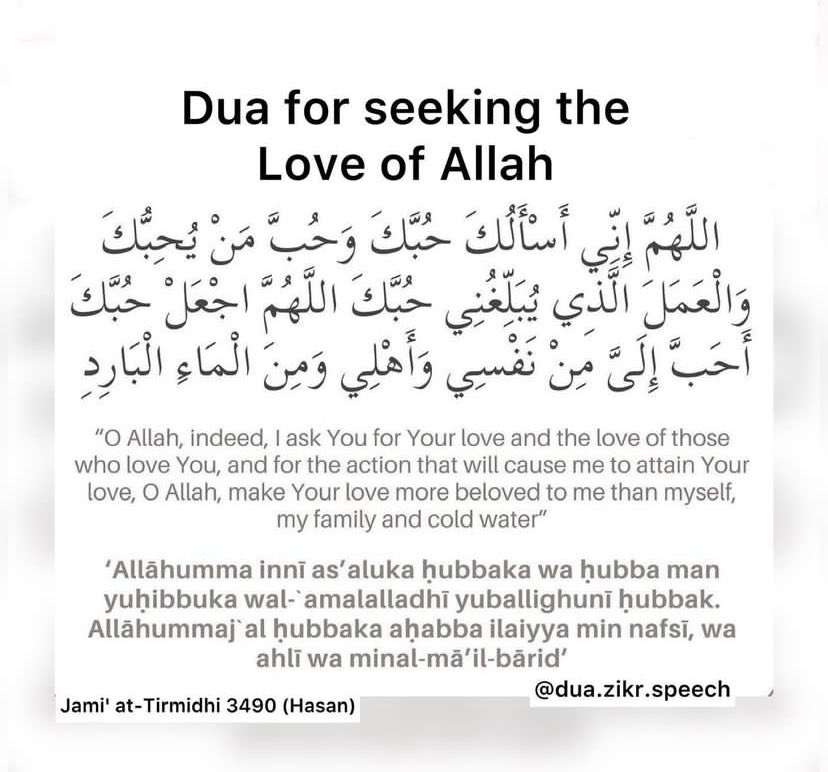 Dua for seeking the
Love of Allah
اللَّهُمَّ إِنِّي أَسْأَلُكَ حُبَّكَ وَحُبَّ مَنْ يُحِبُّكَ
وَالْعَمَلَ الَّذِي يُبَلِّغُنِي حُبَّكَ اللَّهُمَّ اجْعَلْ حُبَّكَ
أَحَبَّ إِلَىَّ مِنْ نَفْسِي وَأَهْلِي وَمِنَ الْمَاءِ الْبَارِدِ
“O Allah, indeed, I ask You for Your love and the love of those
who love You, and for the action that will cause me to attain Your
love, O Allah, make Your love more beloved to me than myself,
my family and cold water”
‘Allāhumma innī as’aluka ḥubbaka wa ḥubba man
yuḥibbuka wal-`amalalladhī yuballighunī ḥubbak.
Allāhummaj`al ḥubbaka aḥabba ilaiyya min nafsī, wa
ahlī wa minal-mā’il-bārid’
@dua.zikr.speech
Jami' at-Tirmidhi 3490 (Hasan)